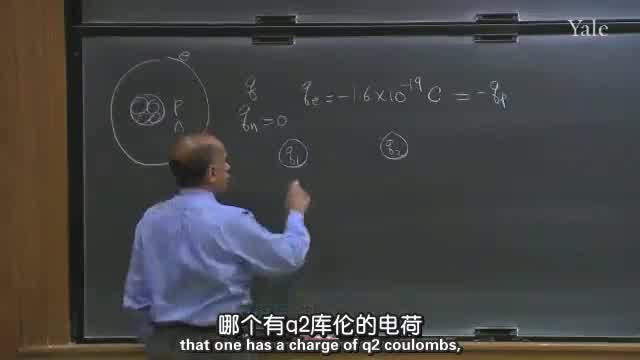 Yale
e
q q_e = -1.6 × 10^-19 C = -q_p
P
n q_n = 0
q_1 q_2
哪个有q2库伦的电荷
that one has a charge of q2 coulombs,